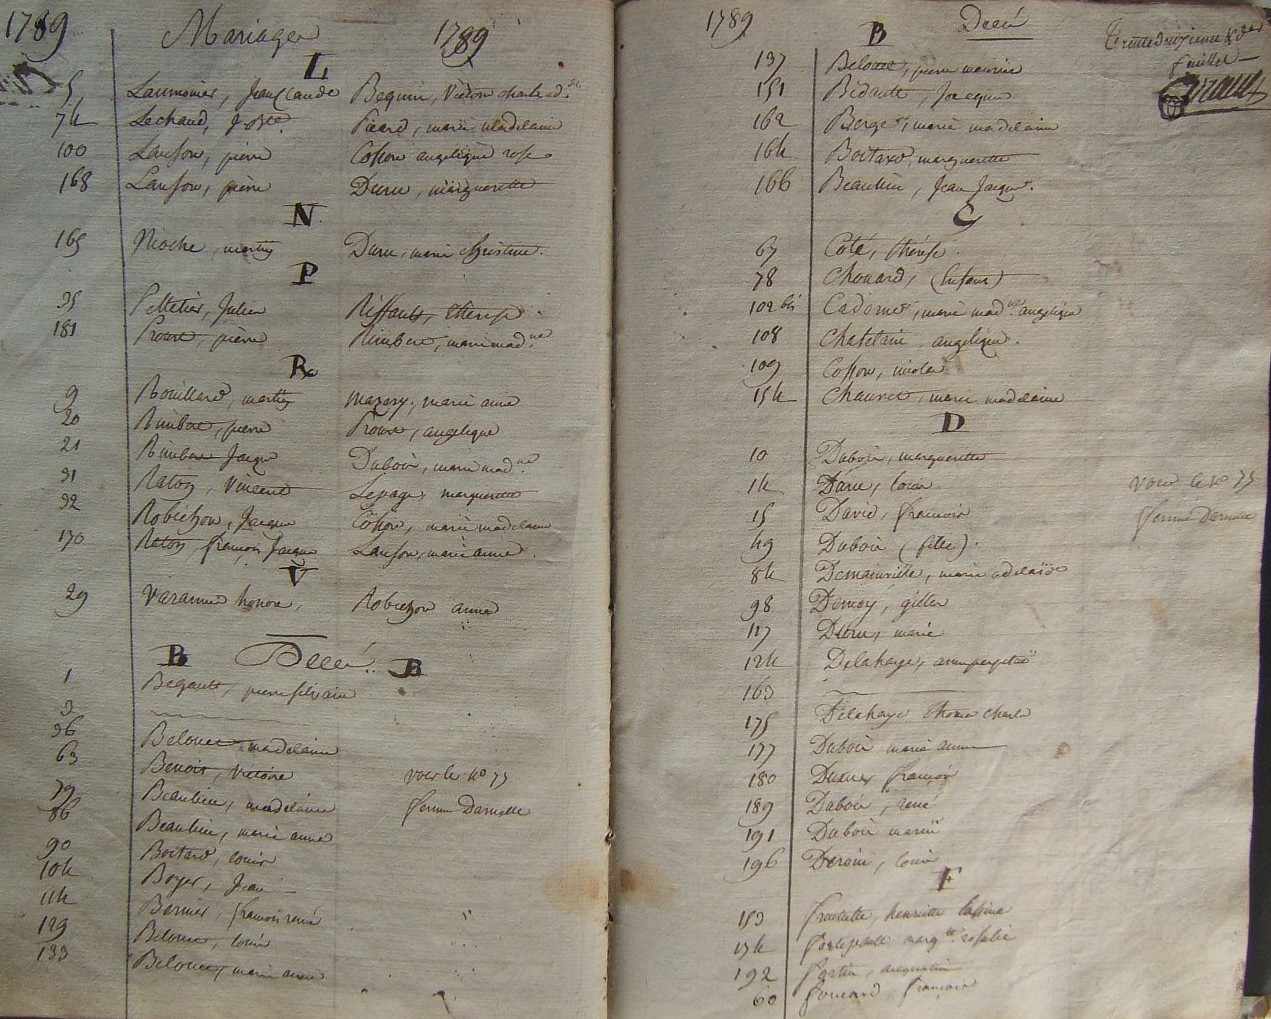 1789 Mariages 1789
L
5 Laumonier, Jean Claude Bequin, Victoire charle ad.de
74 Lechaud, Joseph Picard, marie Madelaine
100 Lanson, pierre Cosson angelique rose
168 Lanson, pierre Duru, margueritte
N
165 Nioche, martin Duru, marie Christine.
P
35 Pelletier, Julien Riffault, therese
181 Proust, pierre Rimbert, marie mad.ne
R
9 Rouillard, martin mazery, marie anne
20 Rimbert, pierre Proust, angelique
21 Rimbert Jacque Dubois, marie mad.ne
31 Raton, Vincent Lepage, marguerite
32 Robichon, Jacque Cosson, marie madelaine
170 Raton, francois Jacque Lanson, marie anne.
V
29 Varanne honoré, Robichon anne
B Décés B
1 Begault, pierre silvain
3
36 Belouet, madelaine
63 Benoist, Victoire voir le no 75
79 Beaulieu, madelaine femme
86 Beaulieu, marie anne
90 Boitard, louis
104 Boyer, Jean
114 Bernier, francois rené
129 Belouet, louis
133 Belouet, marie anne
1789 Décés
B
137 Belouet, pierre maurice
151 Bidault, Jacque
162 Berger, marie madelaine
164 Boitard, marguerite
166 Beaulieu, Jean Jacque.
C
67 Coté, thérèse.
78 Chouard, (Enfant)
102 bis Cadomet, marie mad.ne angelique
108 Chatelain angelique.
109 Cosson, nicolas
154 Chauvet, marie madelaine
D
10 Dubois, marguerite
14 Duru, louis. voir le no 75
15 David, francois femme
49 Dubois (fille).
84 Demainville, marie adelaïde
98 Demoy, gilles
117 Duru, marie
124 Delahaye, anne perpetue
163
175 Delahaye Thomas charles
177 Dubois marie anne
180 francois
189 Dubois, rené
191 Dubois marie
196 Deroin, louis
F
153 henriette
174 marg.te rosalie
192 Fortin, augustin
60 Foucard francois
feuillet